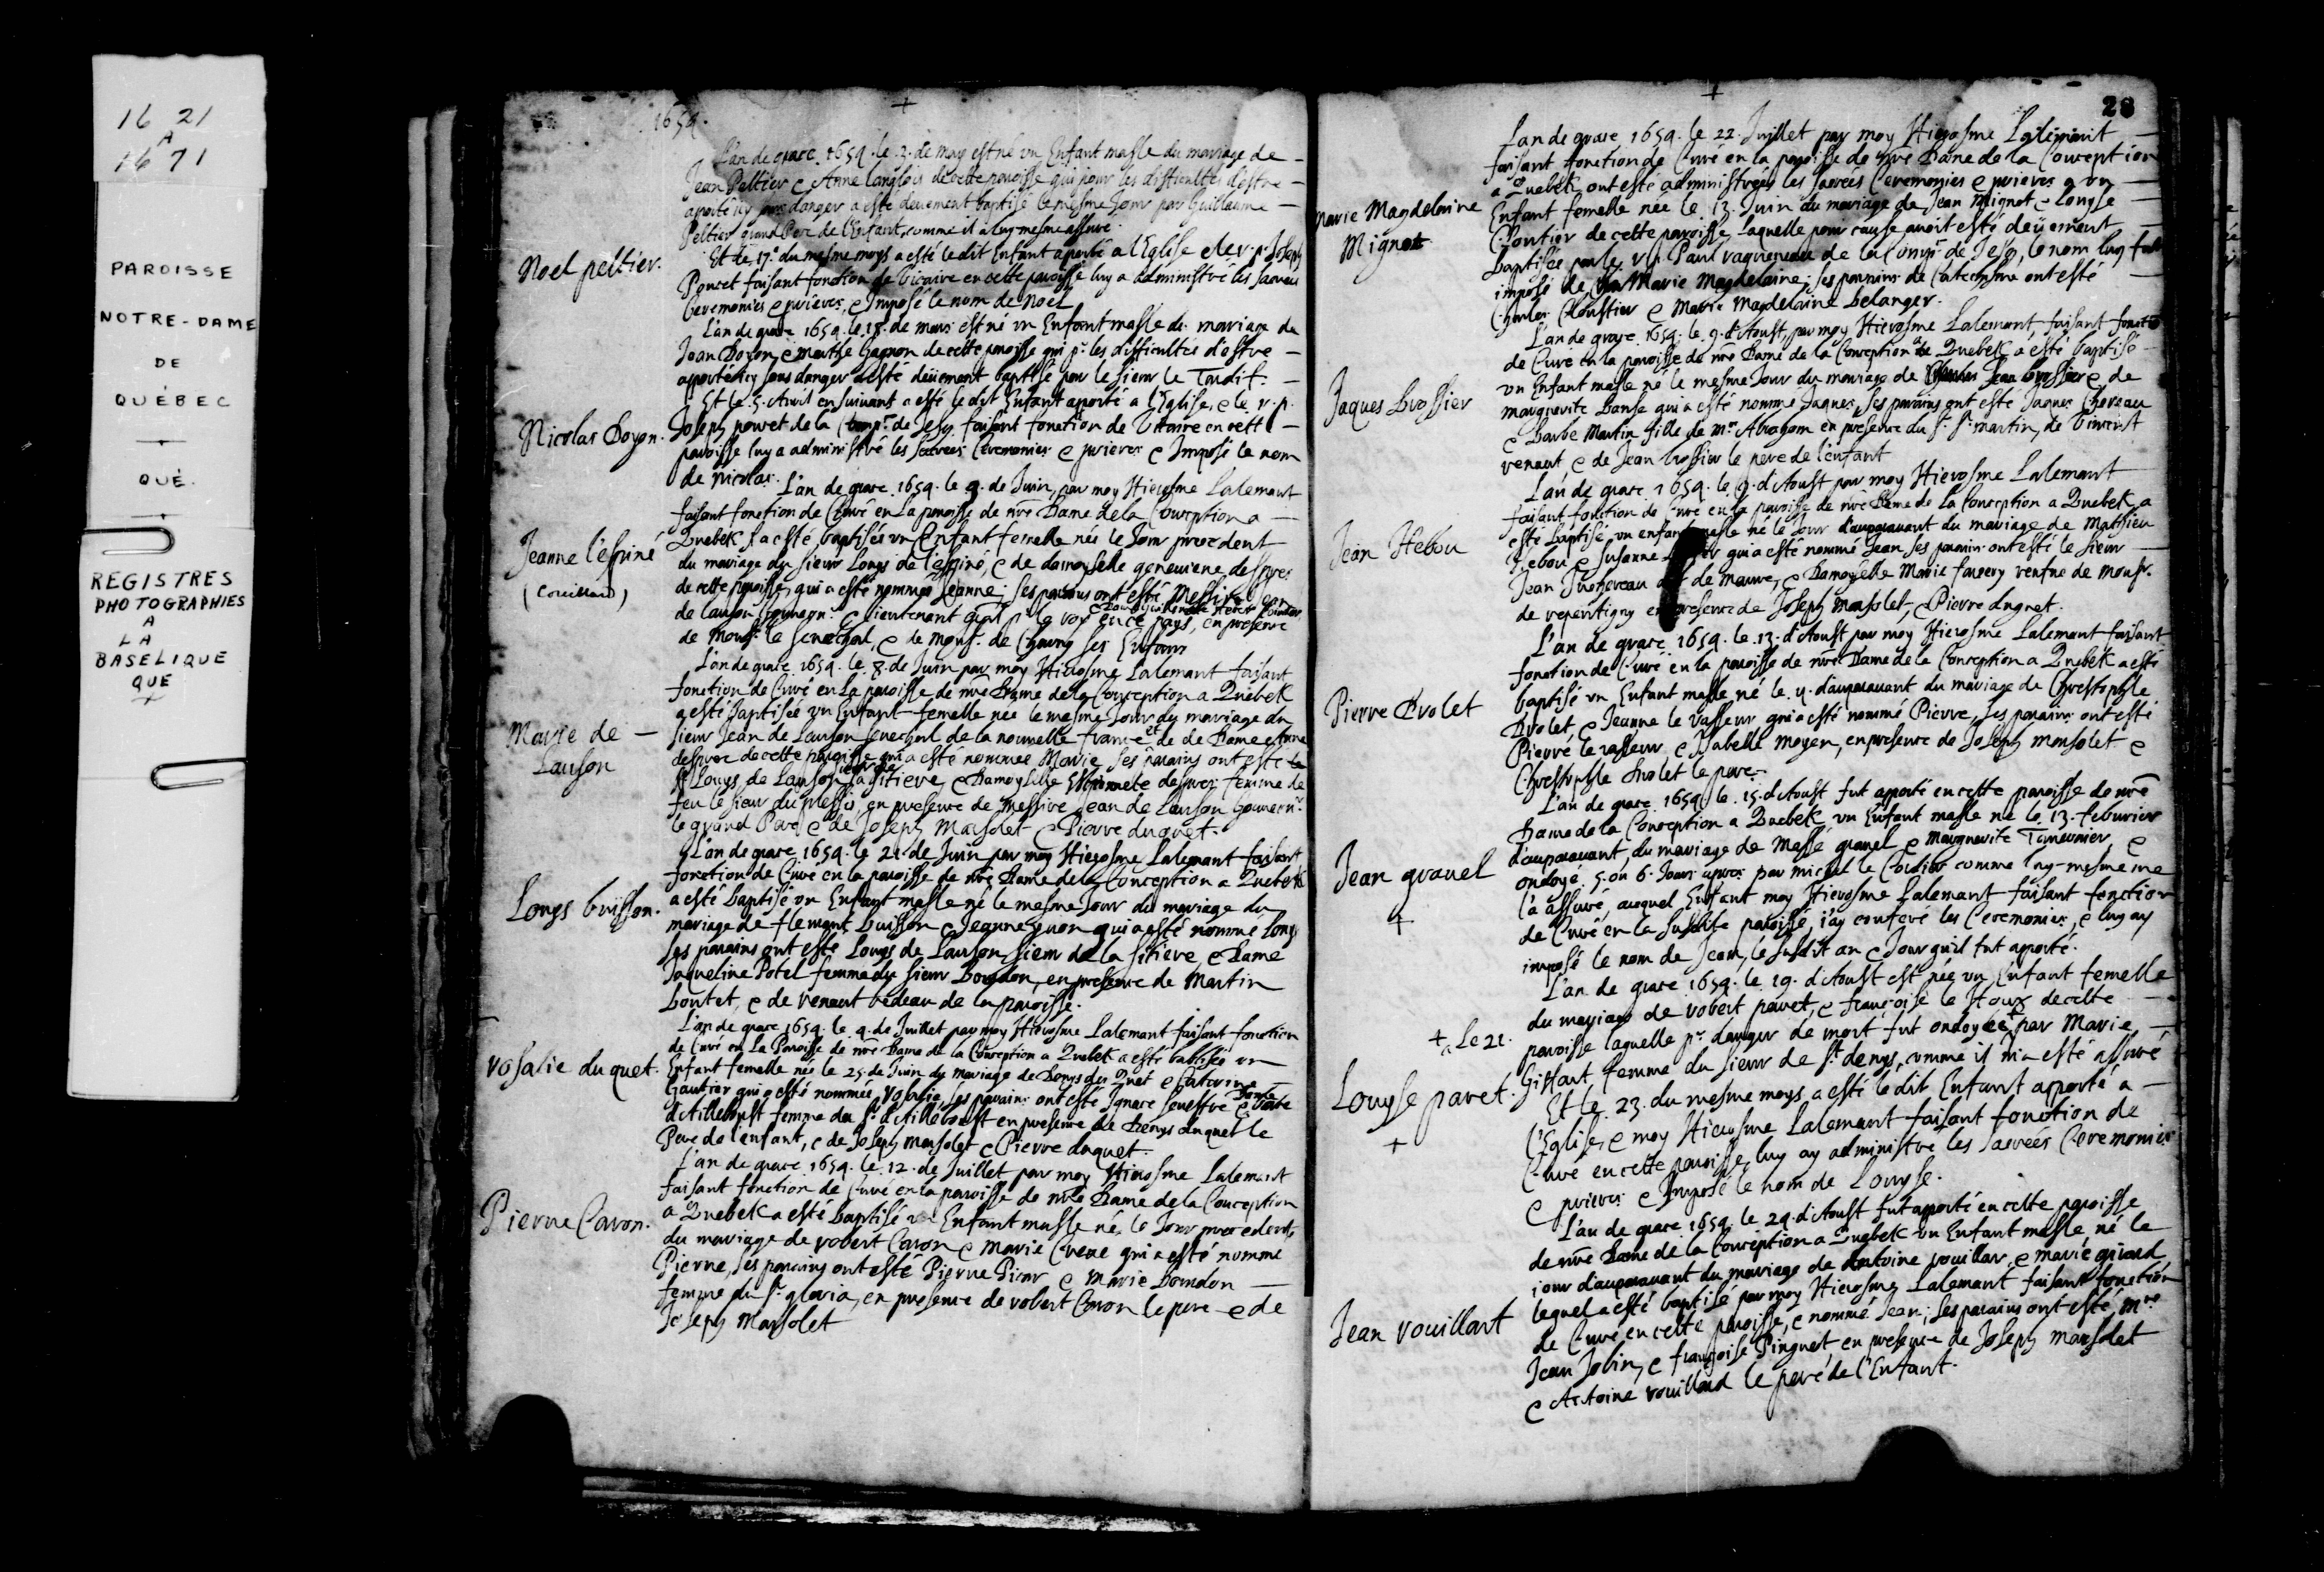 16 21
A
16 71
PAROISSE
NOTRE-DAME
DE
QUÉBEC
QUÉ.
REGISTRES
PHOTOGRAPHIES
A
LA
BASELIQUE
QUE
+
1654.
L'an de grace 1654. le 3. de may est né vn Enfant masle du mariage de
Jean Peltier e Anne langlois de cette paroisse qui pour les difficultés d'estre
aporté icy sans danger a esté deuement baptisé le mesme Jour par Guillaume
Peltier grand Pere de l'Enfant, comme il a luy mesme assuré.
Noel peltier.
Et le 17. du mesme moys a esté le dit Enfant aporté a l'Eglise e le r. p. Joseph
Poncet faisant fonction de Vicaire en cette paroisse luy a administré les sacrees
Ceremonies e prieres, e Imposé le nom de Noel
L'an de grace 1654. le 18. de mars est né vn Enfant masle du mariage de
Jean Doyon, e marthe Gagnon de cette paroisse qui pr. les difficultés d'estre
aporté icy sans danger a esté deüement baptisé par le sieur le Tardif.
Et le 5. Auril en suiuant a esté le dit Enfant aporté a l'Eglise, e le r. p.
Nicolas Doyon.
Joseph poncet de la Comp. de Jesus faisant fonction de Vicaire en cette
paroisse luy a administré les sacrees Ceremonies e prieres e Imposé le nom
de nicolas.
L'an de grace 1654. le 9. de Juin, par moy Hierosme Lalemant
faisant fonction de Curé en La paroisse de nre Dame de la Conception a
Jeanne l'espiné
(Couillard)
Quebek a esté baptisée vn Enfant femelle née le Jour precedent
du mariage du sieur Louys de l'espiné, e de damoyselle geneuieue despres
de cette paroisse, qui a esté nommée Jeanne; ses parains ont esté Messire Jean
de lauson Gouuern. e lieutenant gnal pr le roy en ce pays, en presence
de Monsr. le senechal, e de Monsr. de Charny ses Enfans
L'an de grace 1654. le 8. de Juin par moy Hierosme Lalemant faisant
fonction de Curé en La paroisse de nre Dame de la Conception a Quebek
Marie de
Lauson
a esté baptisée vn Enfant femelle née le mesme Jour du mariage du
sieur Jean de Lauson senechal de la nouuelle france et de Dame Anne
despres de cette paroisse qui a esté nommee Marie, ses parains ont esté
Louys de Lauson sieur de la Citiere, e Damoyselle Estiennete despres femme de
feu le sieur duplessis, en presence de Messire Jean de Lauson Gouuern.
le grand Pere, e de Joseph Marsolet e Pierre duquet.
L'an de grace 1654. le 21. de Juin par moy Hierosme Lalemant faisant
fonction de Curé en la paroisse de nre Dame de la Conception a Quebek
Louys buisson.
a esté baptisé vn Enfant masle né le mesme Jour du mariage du
mariage de flemant buisson e Jeanne guion qui a esté nommé Louys
ses parains ont esté Louys de Lauson, sieur de la sitiere, e Dame
Jaqueline Potel femme du sieur Bourdon, en presence de Martin
boutet, e de venant bedeau de la paroisse.
L'an de grace 1654. le 4. de Juillet par moy Hierosme Lalemant faisant fonction
de Curé en La Paroisse de nre Dame de la Conception a Quebek a esté baptisée vn
rosalie duquet.
Enfant femelle née le 25. de Juin du mariage de Denys du Quet e Catarine
Gautier qui a esté nommée Rosalie, ses parains ont esté Ignace Seuestre e Dame
d'Ailleboust femme du Sr. d'Ailleboust en presence de Denys duquet le
Pere de l'enfant, e de Joseph Marsolet e Pierre duquet.
L'an de grace 1654. le 12. de Juillet par moy Hierosme Lalemant
faisant fonction de Curé en la paroisse de nre Dame de la Conception
Pierre Caron.
a Quebek a esté baptisé vn Enfant masle né le Jour precedent
du mariage de robert Caron e Marie Creuet qui a esté nommé
Pierre, ses parains ont esté Pierre Picar e Marie Bourdon
femme du Sr. gloria, en presence de robert Caron le pere e de
Joseph Marsolet
28
L'an de grace 1654. le 22. Juillet par moy Hierosme Lalemant
faisant fonction de Curé en la paroisse de nre Dame de la Conception
a Quebek ont esté administrees les sacrées Ceremonies e prieres a vn
Marie Magdelaine
Mignot
Enfant femelle née le 13. Juin du mariage de Jean Mignot e Louyse
Cloutier de cette paroisse, laquelle pour cause auoit esté deüement
baptisée par le r. p. Paul ragueneau de la Comp. de Jesus, le nom luy fut
imposé de Marie Magdelaine; ses parains de Catechisme ont esté
Charles Cloustier e Marie Magdelaine belanger.
L'an de grace 1654. le 9. d'Aoust, par moy Hierosme Lalemant, faisant fonctio
de Curé en la paroisse de nre Dame de la Conception a Quebek a esté baptisé
Jaques brossier
vn Enfant masle né le mesme Jour du mariage de Jean brossier e de
marguerite banse qui a esté nommé Jaques, ses parains ont esté Jaques Chereau
e Barbe Martin fille de mr. Abraham en presence du Sr. St martin, de Vincent
renaut e de Jean brossier le pere de l'enfant
L'an de grace 1654. le 9. d'Aoust par moy Hierosme Lalemant
faisant fonction de Curé en la paroisse de nre Dame de La Conception a Quebek a
Jean Hebou
esté baptisé vn enfant masle né le Jour d'auparauant du mariage de Mathieu
hebou e Susanne qui a esté nommé Jean ses parains ont esté le sieur
Jean Juchereau de maure, e Damoyselle Marie fauery femme de Monsr.
de repentigny en presence de Joseph Marsolet, e Pierre duquet.
L'an de grace 1654. le 13. d'Aoust par moy Hierosme Lalemant faisant
fonction de Curé en la paroisse de nre Dame de la Conception a Quebek a esté
Pierre Drolet
baptisé vn Enfant masle né le 4. d'auparauant du mariage de Christophle
Drolet, e Jeanne le Vasseur qui a esté nommé Pierre, ses parains ont esté
Pierre le vasseur e Isabelle Moyen, en presence de Joseph Marsolet e
Christophle Drolet le pere.
L'an de grace 1654. le 15. d'Aoust fut aporté en cette paroisse de nre
Dame de la Conception a Quebek vn Enfant masle né le 13. feburier
Jean grauel
+
d'auparauant du mariage de Massé grauel e Marguerite Tauernier, e
ondoyé 5. ou 6. Jours apres par michel le Courtier comme luy-mesme me
l'a assuré, auquel Enfant moy Hierosme Lalemant faisant fonction
de Curé en la susdite paroisse, j'ay conferé les Ceremonies, e luy ay
imposé le nom de Jean, le susdit an e Jour qu'il fut aporté.
L'an de grace 1654. le 19. d'Aoust est née vn Enfant femelle
du mariage de robert paret, e françoise le Houx de cette
+ Le 21.
paroisse laquelle pr. danger de mort fut ondoyée + par Marie
Louyse paret.
+
Giffart, femme du sieur de St denys, comme il m'a esté assuré
Et le 23. du mesme moys a esté le dit Enfant apporté a
l'Eglise, e moy Hierosme Lalemant faisant fonction de
Curé en cette paroisse, luy ay administré les sacrées Ceremonies
e prieres e Imposé le nom de Louyse.
L'an de grace 1654. le 29. d'Aoust fut aporté en cette paroisse
de nre Dame de la Conception a Quebek vn Enfant masle né le
jour d'auparauant du mariage de Antoine rouillar, e marie girard
Jean rouillart
lequel a esté baptisé par moy Hierosme Lalemant faisant fonction
de Curé en cette paroisse, e nommé Jean; ses parains ont esté Mre
Jean Jobin, e françoise Pinguet, en presence de Joseph marsolet
e Antoine rouillard le pere de l'Enfant.